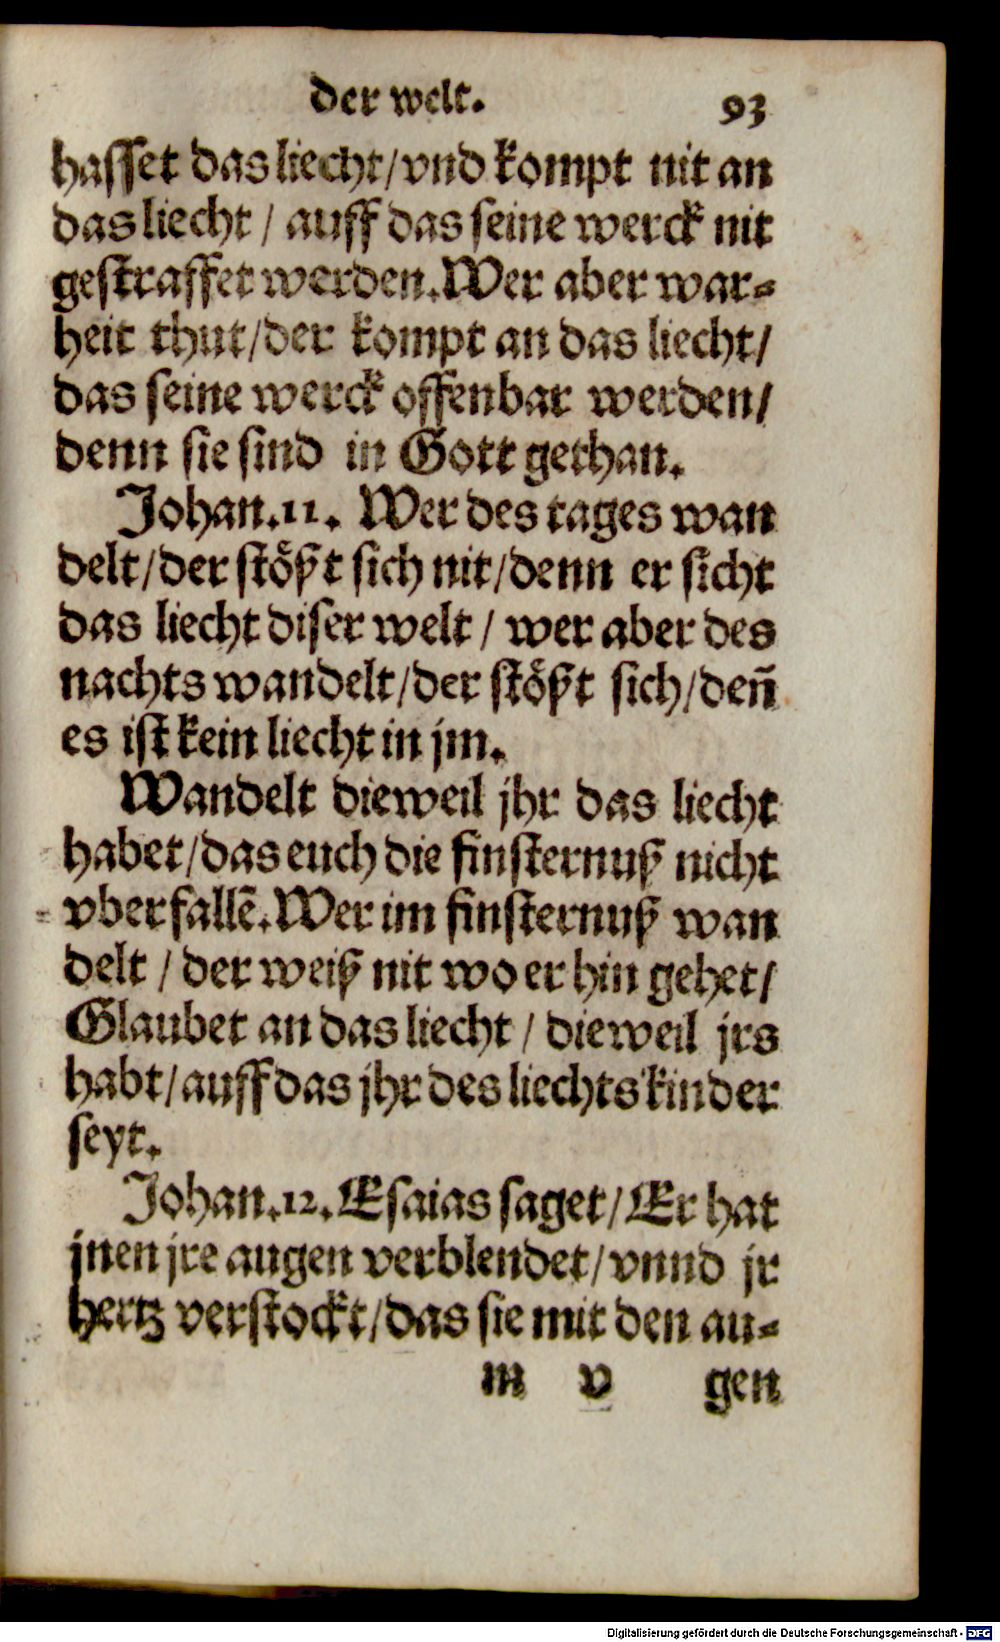 der welt. 93
hasset das liecht/vnd kompt nit an
das liecht / auff das seine werck nit
gestraffet werden. Wer aber war-
heit thut/der kompt an das liecht/
das seine werck offenbar werden/
denn sie sind in Gott gethan.
Johan.11. Wer des tages wan
delt/der stößt sich nit/denn er sicht
das liecht diser welt / wer aber des
nachts wandelt/der stößt sich/deñ
es ist kein liecht in jm.
Wandelt dieweil jhr das liecht
habet/das euch die finsternuß nicht
vberfallẽ. Wer im finsternuß wan
delt / der weiß nit wo er hin gehet/
Glaubet an das liecht / dieweil jrs
habt/auff das jhr des liechts kinder
seyt.
Johan.12. Esaias saget/Er hat
jnen jre augen verblendet/vnnd jr
hertz verstockt/das sie mit den au-
m v gen
Digitalisierung gefördert durch die Deutsche Forschungsgemeinschaft - DFG